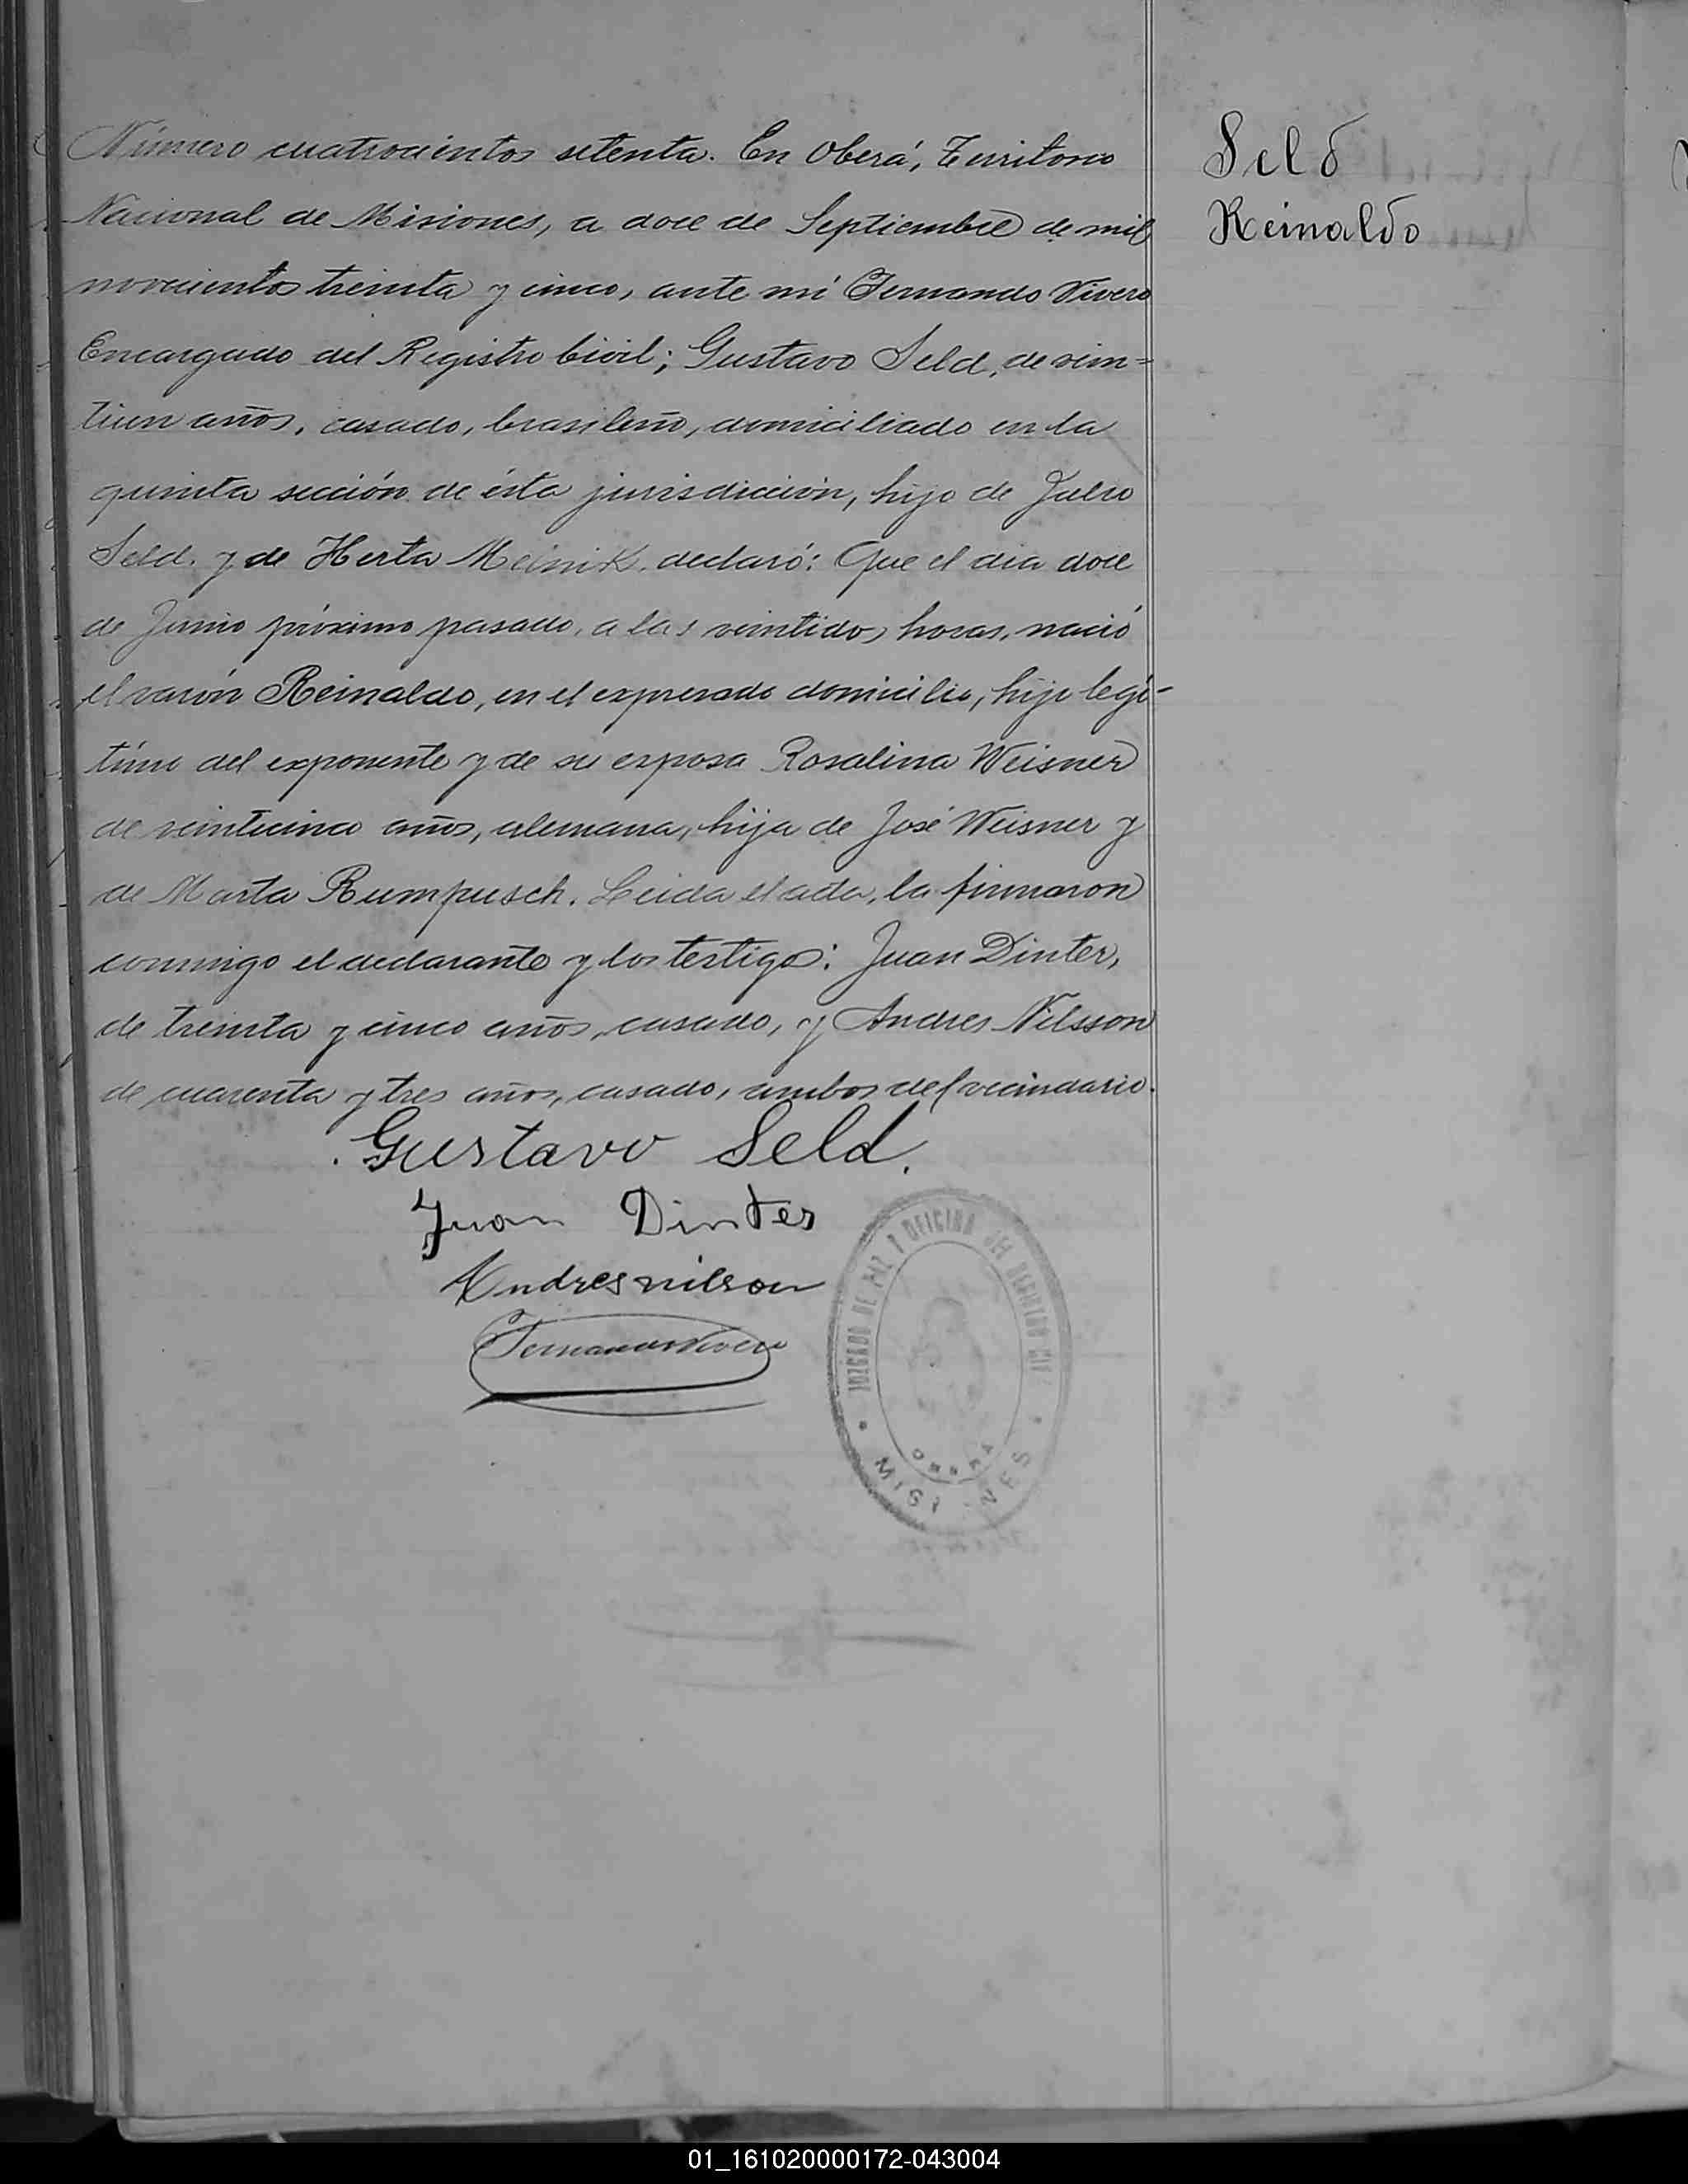 Número cuatrocientos setenta. En Oberá, Territorio
Nacional de Misiones, a doce de Septiembre de mil
novecientos treinta y cinco, ante mí Fernando Vivero
Encargado del Registro Civil; Gustavo Seld, de vein=
tiun años, casado, brasileño, domiciliado en la
quinta sección de ésta jurisdicción, hijo de Julio
Seld. y de Herta Meinik. declaró: Que el dia doce
de Junio próximo pasado, a las veintidos horas, nació
el varón Reinaldo, en el expresado domicilio, hijo legí-
timo del exponente y de su esposa Rosalina Weisner
de veinticinco años, alemana, hija de José Weisner y
de Marta Rumpusch. Leida el acta, la firmaron
conmigo el declarante y los testigos: Juan Dinter,
de treinta y cinco años, casado, y Andres Nilsson
de cuarenta y tres años, casado, ambos del vecindario.
Gustavo Seld.
Juan Dinter
Andres nilson
Fernando Vivero
Seld
Reinaldo
JUZGADO DE PAZ Y OFICINA DEL REGISTRO CIVIL
MISIONES
01_161020000172-043004